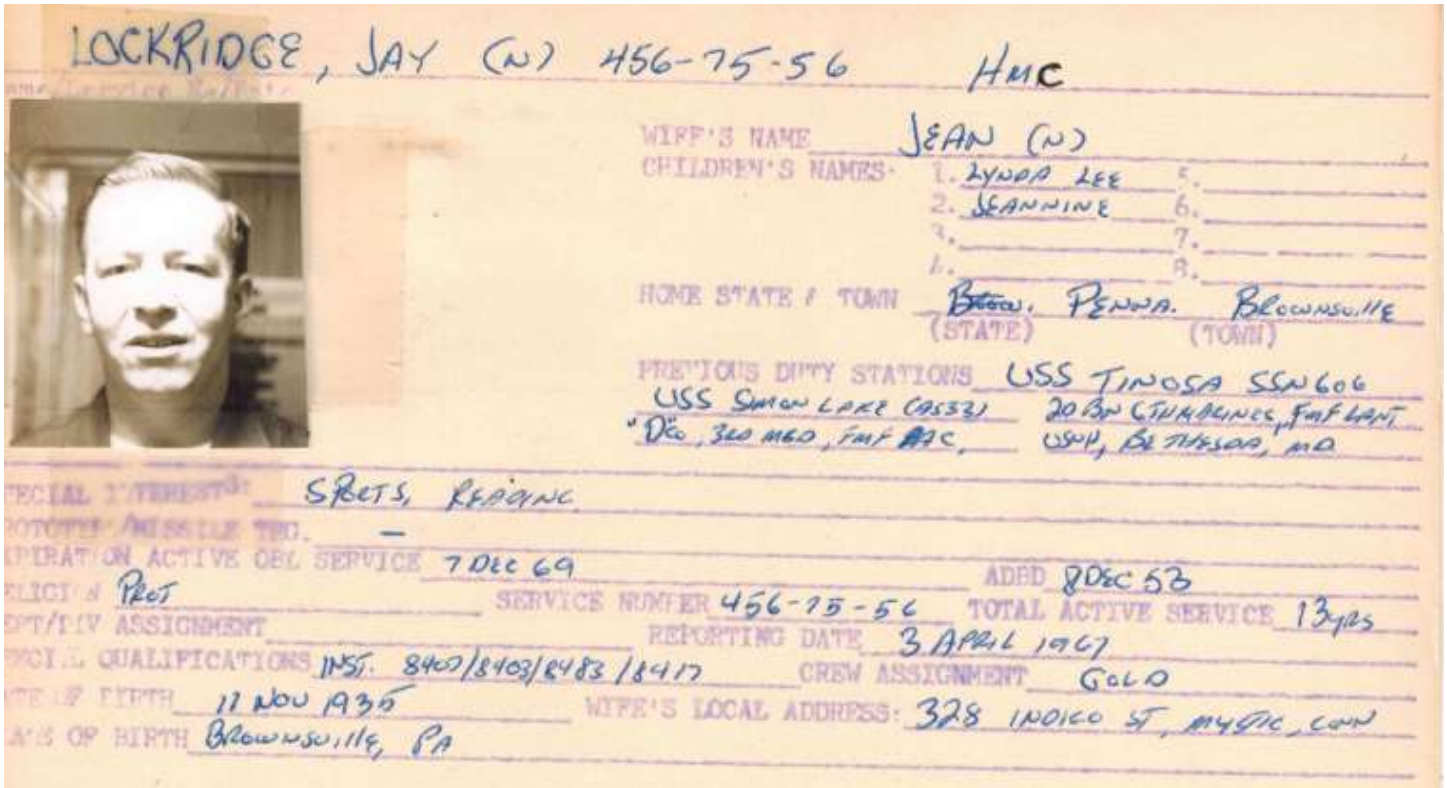 LOCKRIDGE, JAY (N) 456-75-56 HMC
WIFE'S NAME JEAN (N)
CHILDREN'S NAMES: 1. LYNDA LEE 5.
2. JEANNINE 6.
3. 7.
4. 8.
HOME STATE & TOWN PENNA. BROWNSVILLE
(STATE) (TOWN)
PREVIOUS DUTY STATIONS USS TINOSA SSN606
USS SIMON LAKE (AS33) 2D BN 6THMARINES, FMF LANT
"D" Co, 3RD MED, FMF PAC, USNH, BETHESDA, MD
SPECIAL INTERESTS: SPORTS, READING
/MISSILE TNG. —
EXPIRATION ACTIVE OBL SERVICE 7 DEC 69 ADBD 8 DEC 53
RELIGION PROT SERVICE NUMBER 456-75-56 TOTAL ACTIVE SERVICE 13yrs
DEPT/DIV ASSIGNMENT REPORTING DATE 3 APRIL 1967
SPECIAL QUALIFICATIONS INST. 8407/8403/8483/8417 CREW ASSIGNMENT GOLD
DATE OF BIRTH 11 NOV 1935 WIFE'S LOCAL ADDRESS: 328 INDIGO ST, MYSTIC, CONN
BIRTH BROWNSVILLE, PA